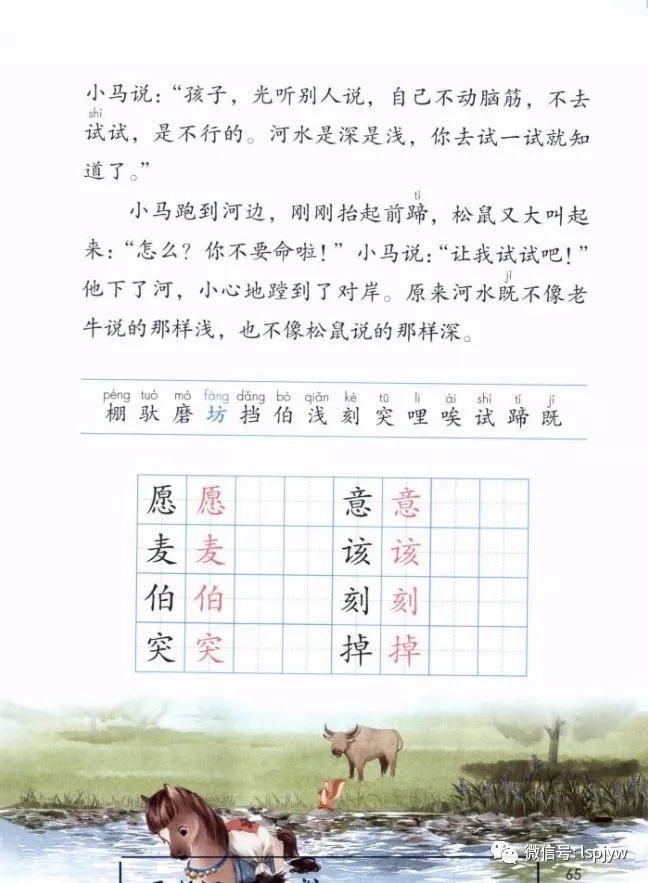 小马说：“孩子，光听别人说，自己不动脑筋，不去
shì
试试，是不行的。河水是深是浅，你去试一试就知
道了。”
tí
小马跑到河边，刚刚抬起前蹄，松鼠又大叫起
来：“怎么？你不要命啦！”小马说：“让我试试吧！”
jì
他下了河，小心地蹚到了对岸。原来河水既不像老
牛说的那样浅，也不像松鼠说的那样深。
péng tuó mò fáng dǎng bó qiǎn kè tū li āi shì tí jì
棚 驮 磨 坊 挡 伯 浅 刻 突 哩 唉 试 蹄 既
愿 愿 意 意
麦 麦 该 该
伯 伯 刻 刻
突 突 掉 掉
微信号: lspjyw
65